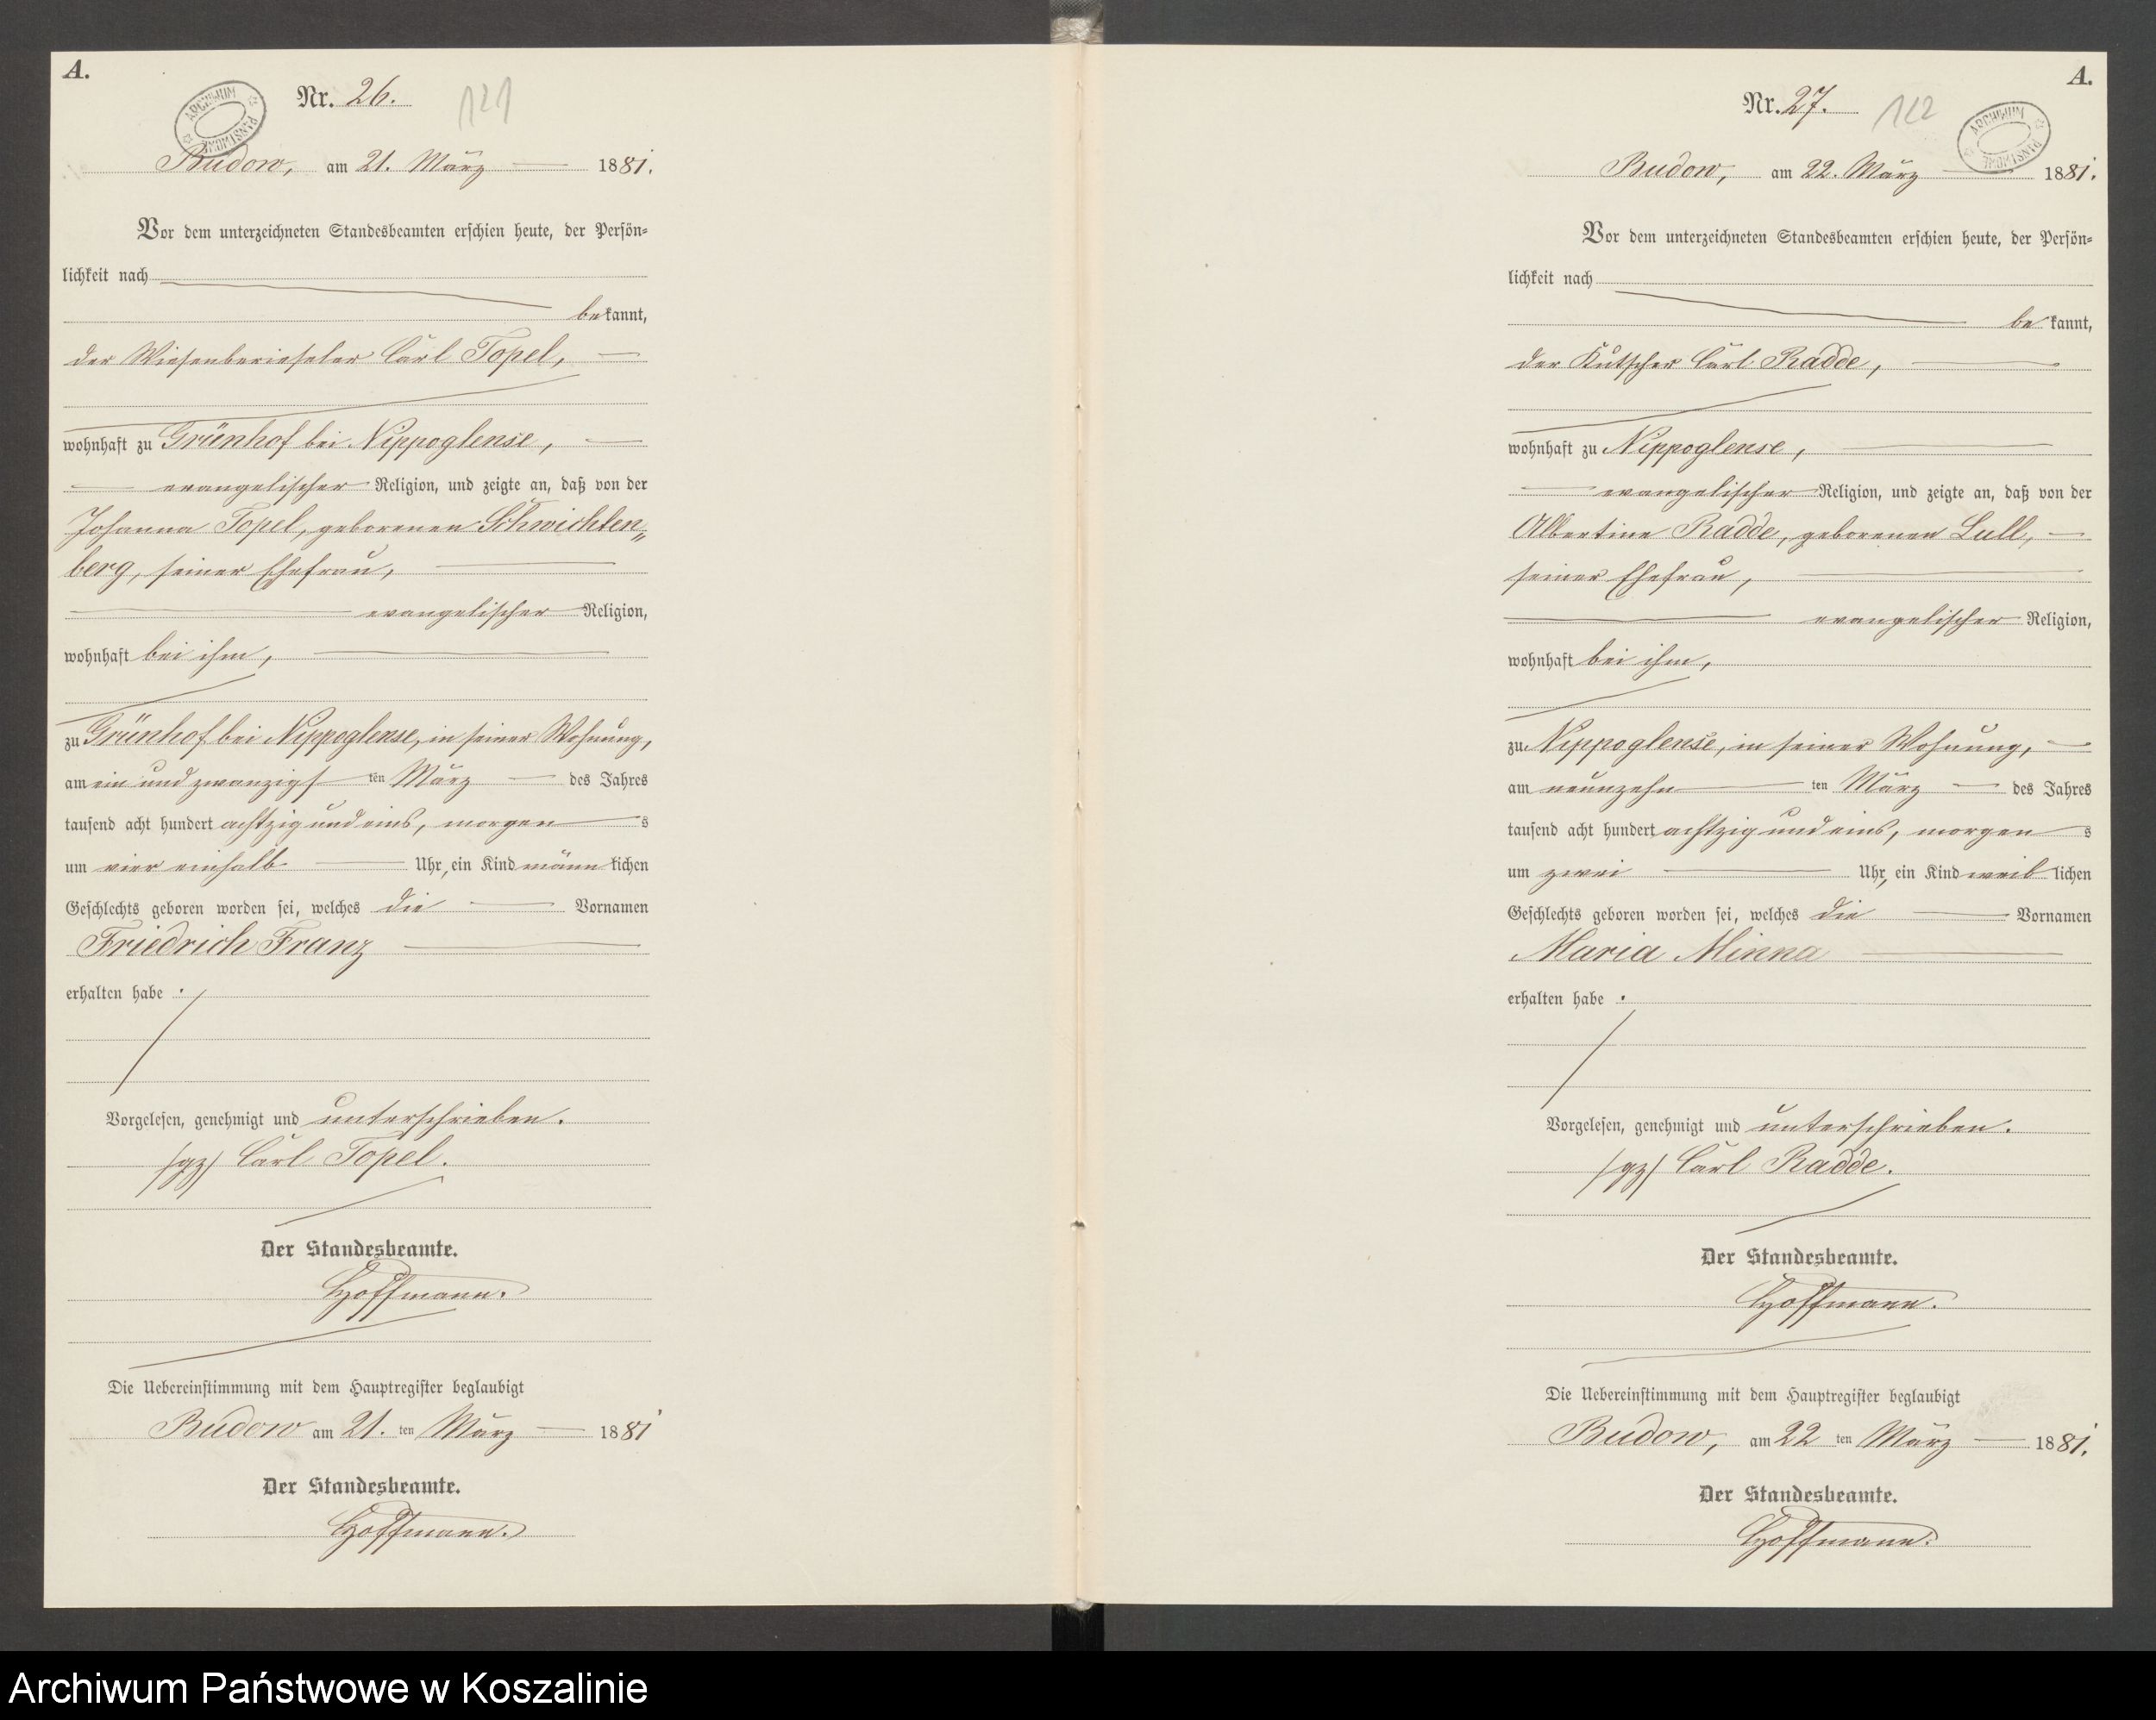 A.
Nr. 26.
121
ARCHIWUM PAŃSTWOWE
Budow, am 21. März 1881.
Vor dem unterzeichneten Standesbeamten erschien heute, der Persön=
lichkeit nach
bekannt,
der Wiesenberieseler Carl Topel,
wohnhaft zu Grünhof bei Nippoglense,
evangelischer Religion, und zeigte an, daß von der
Johanna Topel, geborenen Schwichten„
berg, seiner Ehefrau,
evangelischer Religion,
wohnhaft bei ihm,
zu Grünhof bei Nippoglense, in seiner Wohnung,
am ein und zwanzigsten März des Jahres
tausend acht hundert achtzig und eins, morgens
um vier einhalb Uhr, ein Kind männlichen
Geschlechts geboren worden sei, welches die Vornamen
Friedrich Franz
erhalten habe.
Vorgelesen, genehmigt und unterschrieben.
/gz/ Carl Topel.
Der Standesbeamte.
Hoffmann.
Die Uebereinstimmung mit dem Hauptregister beglaubigt
Budow am 21. ten März 1881
Der Standesbeamte.
Hoffmann.
A.
Nr. 27.
122
ARCHIWUM PAŃSTWOWE
Budow, am 22. März 1881.
Vor dem unterzeichneten Standesbeamten erschien heute, der Persön=
lichkeit nach
bekannt,
der Kutscher Carl Radde,
wohnhaft zu Nippoglense,
evangelischer Religion, und zeigte an, daß von der
Albertine Radde, geborenen Lull,
seiner Ehefrau,
evangelischer Religion,
wohnhaft bei ihm,
zu Nippoglense, in seiner Wohnung,
am neunzehnten März des Jahres
tausend acht hundert achtzig und eins, morgens
um zwei Uhr, ein Kind weiblichen
Geschlechts geboren worden sei, welches die Vornamen
Maria Minna
erhalten habe.
Vorgelesen, genehmigt und unterschrieben.
/gz/ Carl Radde.
Der Standesbeamte.
Hoffmann.
Die Uebereinstimmung mit dem Hauptregister beglaubigt
Budow, am 22 ten März 1881.
Der Standesbeamte.
Hoffmann.
Archiwum Państwowe w Koszalinie